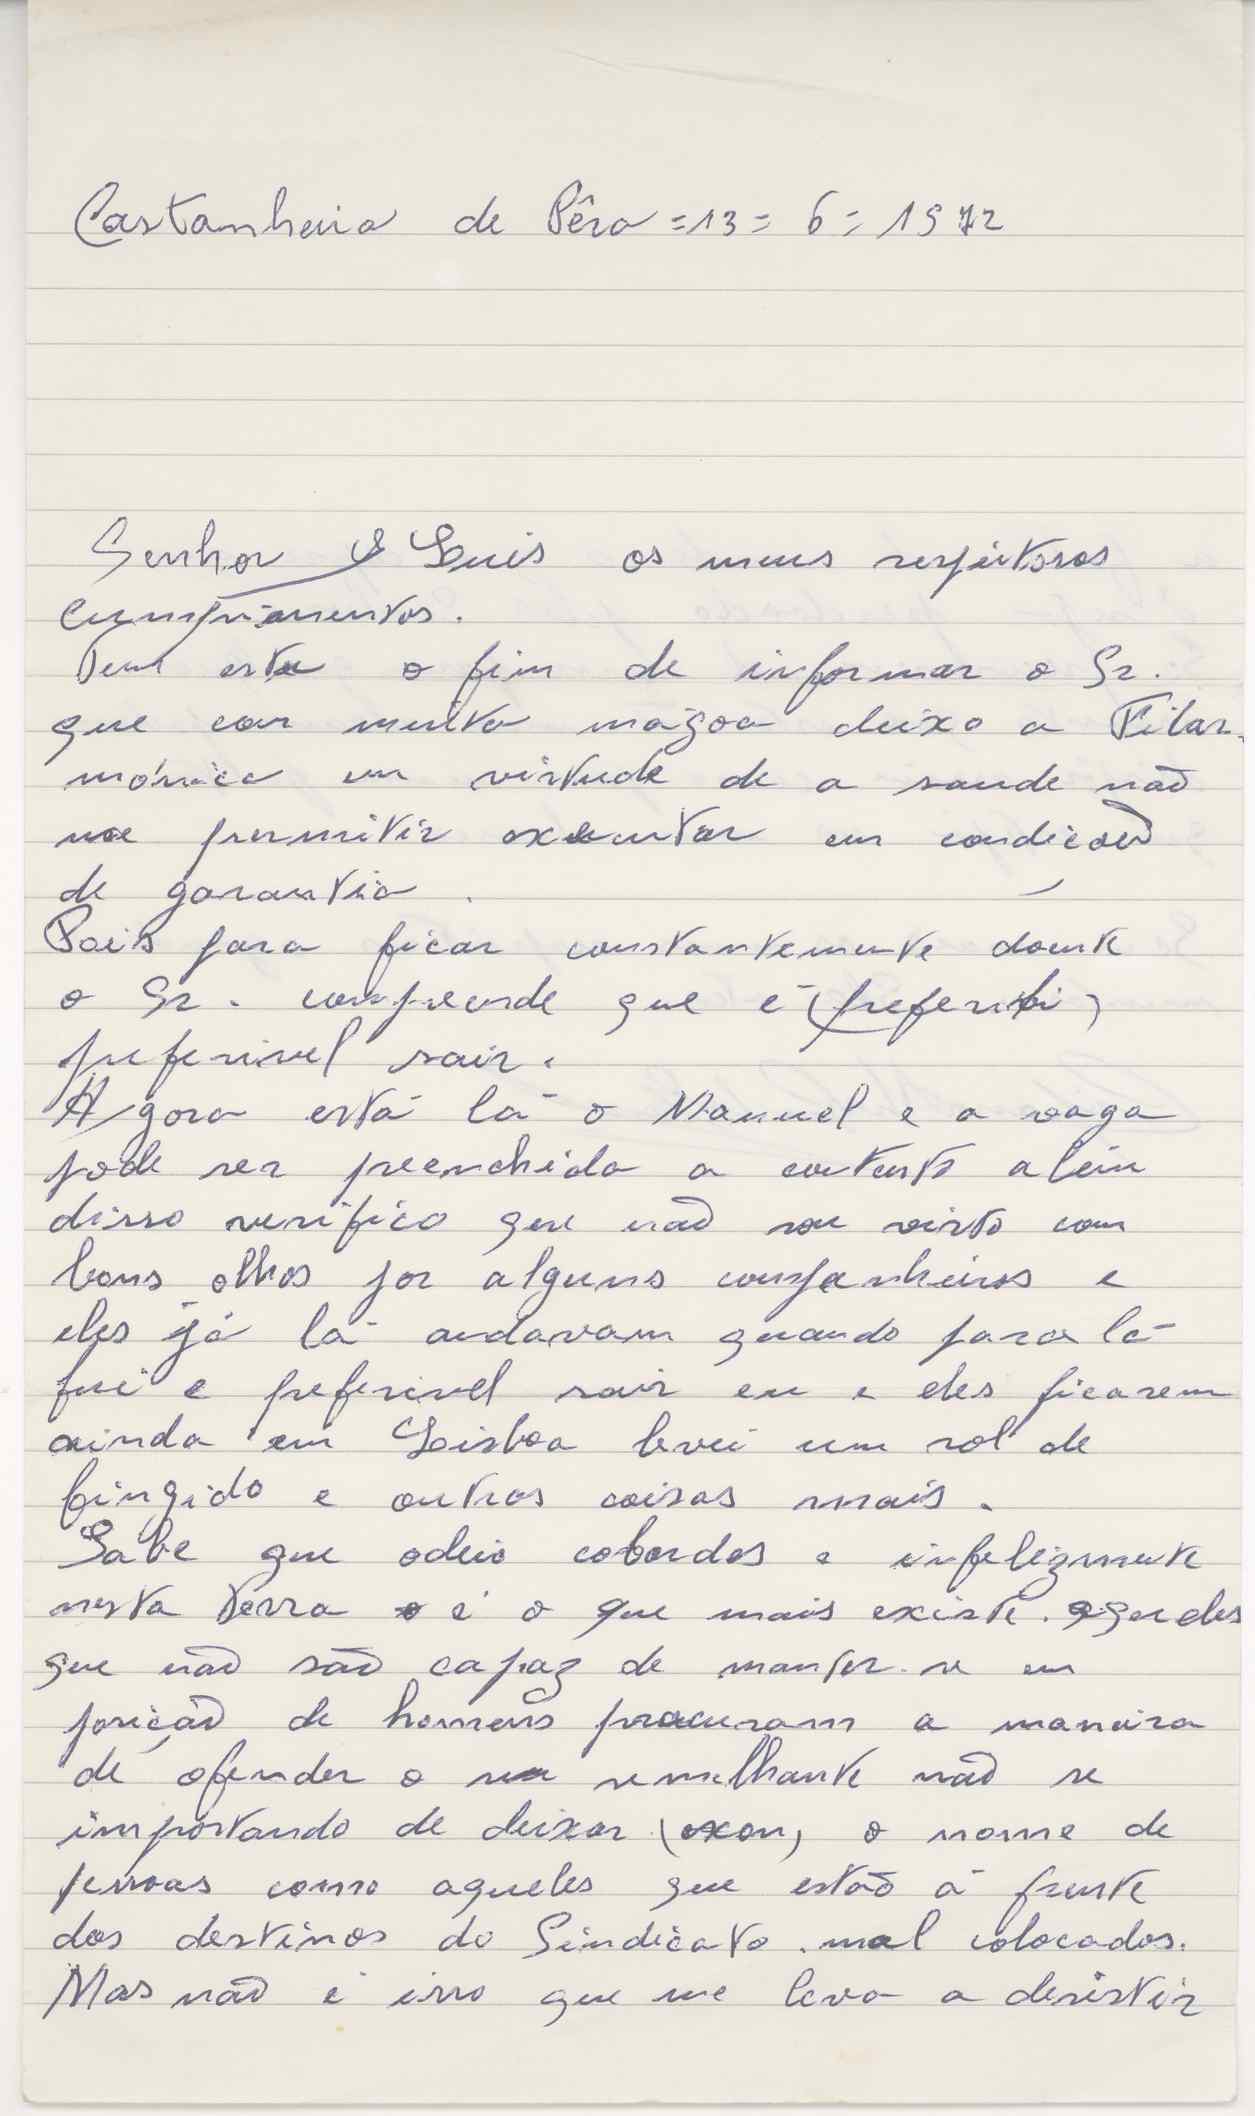 Castanheira de Pêra =13= 6= 1972
Senhor Luis os meus respeitosos
cumprimentos.
Tem esta o fim de informar o Sr.
que com muita magoa deixo a Filar-
mónica em virtude de a saude não
me permitir executar em condições
de garantia.
Pois para ficar constantemente doente
o Sr. compreende que é (preferivi)
preferivel sair.
Agora está lá o Manuel e a vaga
pode ser preenchida a contento alem
disso verifico que não sou visto com
bons olhos por alguns companheiros e
eles já lá andavam quando para lá
fui e preferivel sair eu e eles ficarem
ainda em Lisboa levei um rol de
fingido e outras coisas mais.
Sabe que odeio cobardes e infelizmente
nesta terra é o que mais existe. aqueles
que não são capaz de manter-se em
posição de homens procuram a maneira
de ofender o seu semelhante não se
importando de deixar o nome de
pessoas como aqueles que estão á frente
dos destinos do Sindicato. mal colocados.
Mas não é isso que me leva a desistir